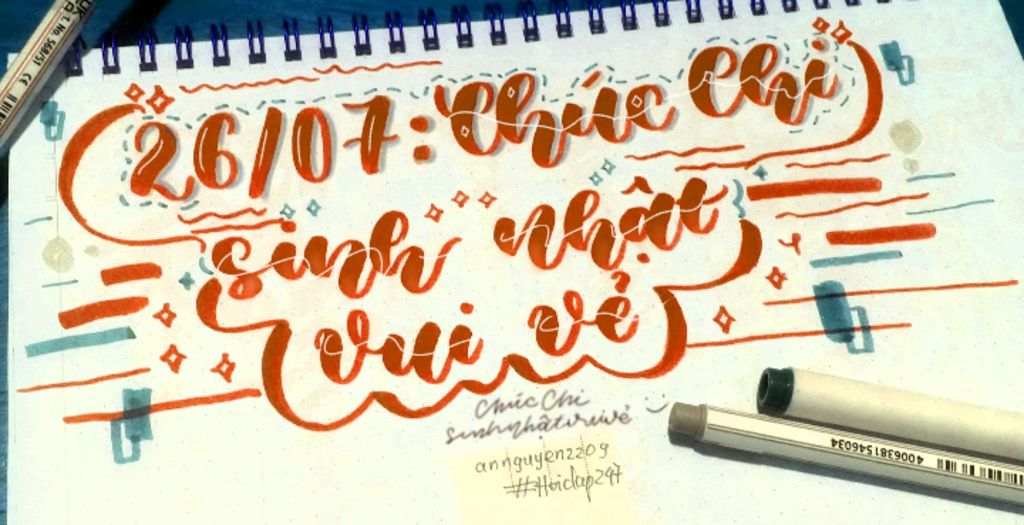 26/07: Chúc Chi
sinh nhật
vui vẻ
Chúc Chi
sinh nhật vui vẻ
annguyen2209
#Hoidap247
4006381546034